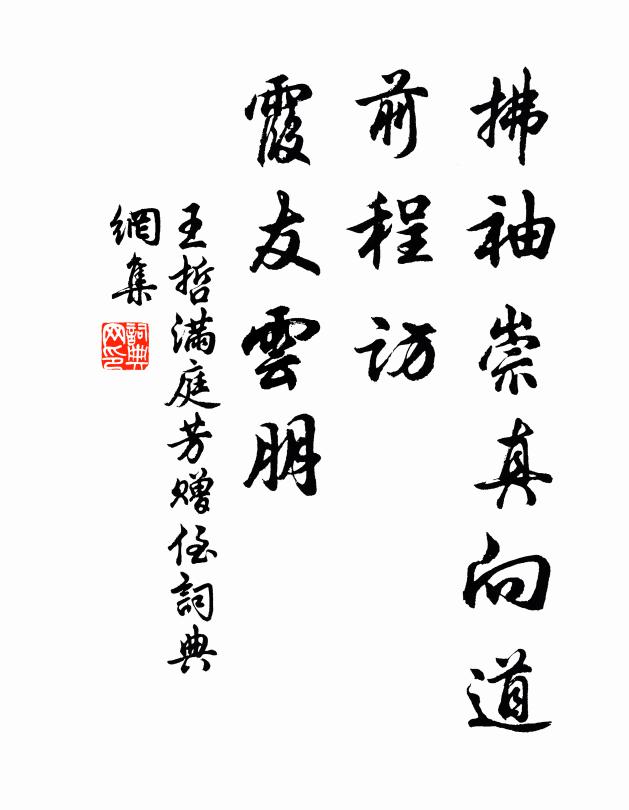 拂袖崇真向道
前程访
霞友雲朋
王哲满庭芳赠侄詞典
網集
詞典网印